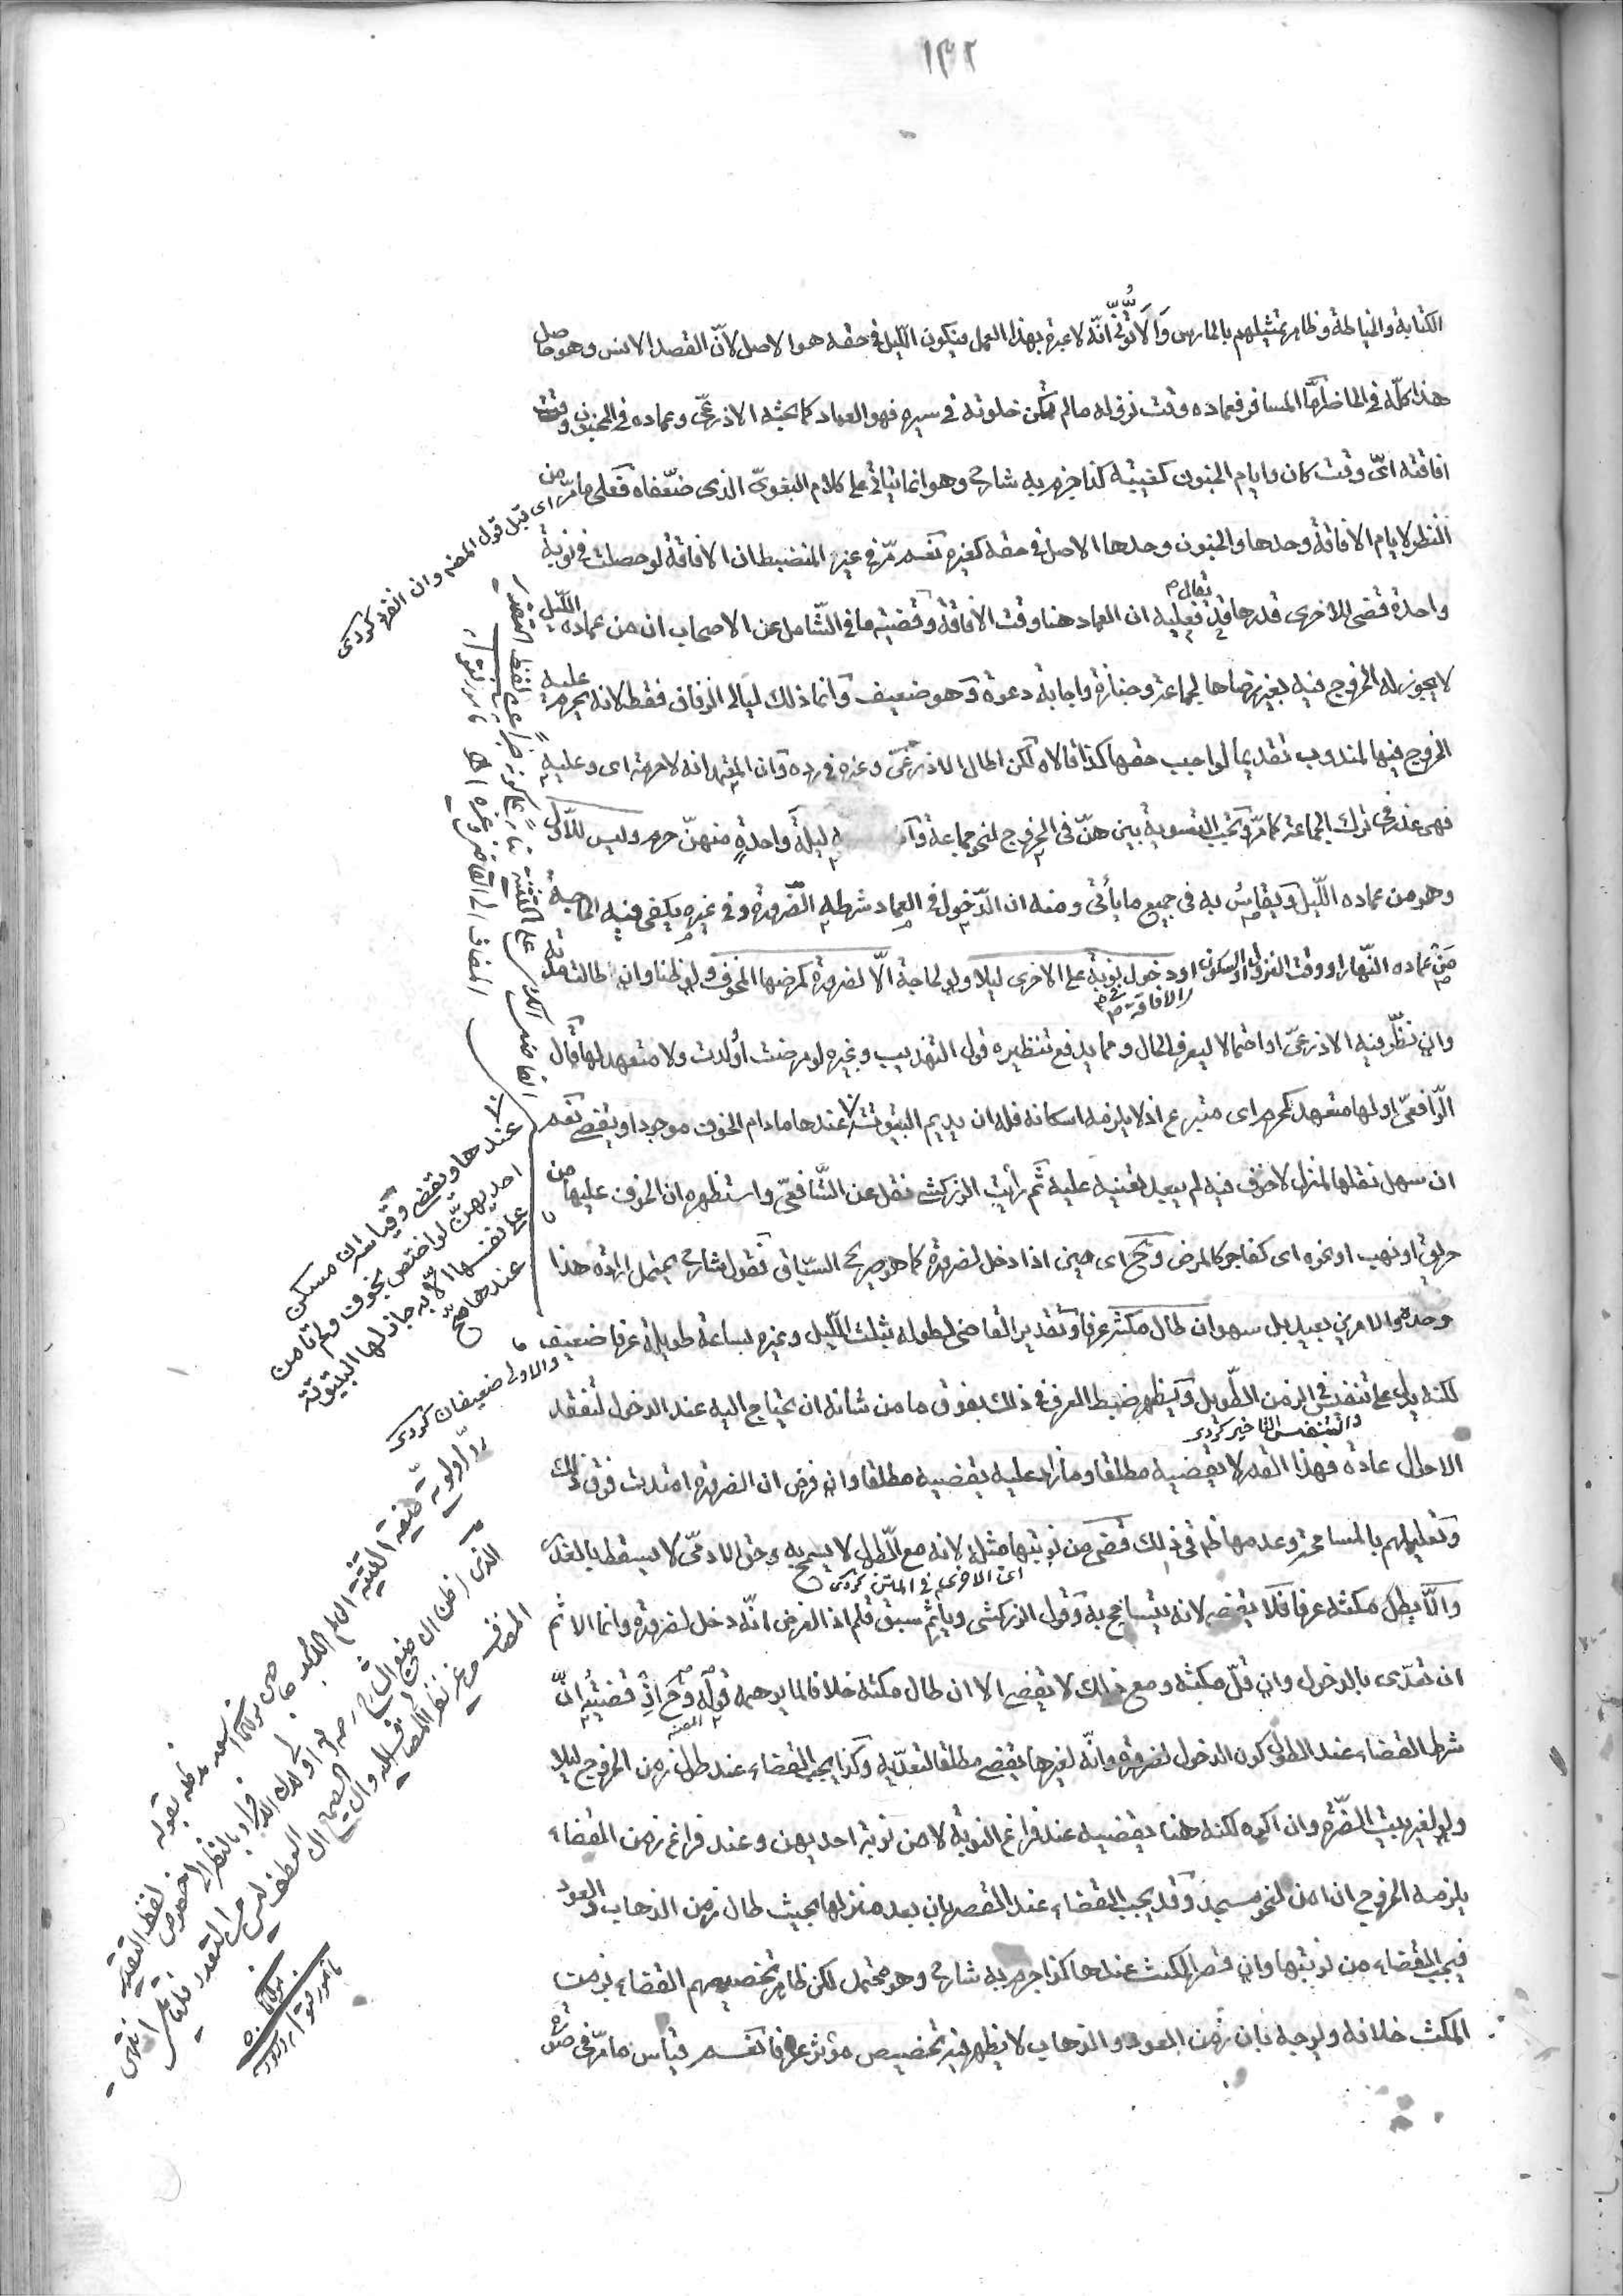 ١٣٢
الكتابة والخياطة وظاهر تمثيلهم بالحارس والاتّونيّ انّه لا عبرة بهذا العمل فيكون الليل في حقه هو الاصل لانّ القصد الانس وهو حاصل
هذا كلّه في الحاضر امّا المسافر فعماده وقت نزوله ما لم تكن خلوته في سيره فهو العماد كما بحثه الاذرعيّ وعماده في المجنون وقت
افاقته ايّ وقت كان وايام الجنون كغيبته كذا جزم به شارح وهو انما يتأتى على كلام البغويّ الذى ضعّفاه فعلى ما مرّ من
النظر لايام الافاقة وحدها والجنون وحدها الاصل في حقه كغيره نعم مرّ في غير المنضبط ان الافاقة لو حصلت في نوبة
واحدة قضى للاخرى قدرها فعليه ان العماد هنا وقت الافاقة وقضيته ما في الشّامل عن الاصحاب ان من عماده الليل
لا يجوز له الخروج فيه بغير رضاها لجماعة وجنازة واجابة دعوة وهو ضعيف وانما ذلك ليالى الزفاف فقط لانه يحرم عليه
الخروج فيها لمندوب تقديما لواجب حقها كذا قالاه لكن اطال الاذرعيّ وغيره في رده وان المعتمد انه لا حرمة اى وعليه
فهى عذر في ترك الجماعة كما مرّ وتجب التسوية بينهنّ في الخروج لنحو جماعة ليلة واحدة منهنّ حرم وليس للاوّل
وهو من عماده اللّيل ويقاس به في جميع ما يأتى ومنه ان الدّخول في العماد شرطه الضّرورة وفي غيره يكفى فيه الحاجة
من عماده النّهار او وقت النزول او السكون او دخول نوبة على الاخرى ليلا ولو لحاجة الّا لضرورة كمرضها المخوف ولو ظنا وان طالت مدته
وان نظّر فيه الاذرعيّ او احتمالا ليعرف الحال ومما يدفع تنظيره قول التهذيب وغيره لو مرضت او ولدت ولا متعهد لها قال
الرّافعىّ او لها متعهد كمحرم اى متبرع اذ لا يلزمه اسكانه فله ان يديم البيتوتة عندها ما دام الخوف موجودا ويقضى نعم
ان سهل نقلها لمنزل لا خوف فيه لم يبعد تعينه عليه ثم رأيت الزركشى نقل عن الشّافعىّ واستظهره ان الخوف عليها من
حريق او نهب او نحوه اى كفاجر كالمرض وح اى حين اذا دخل لضرورة كما هو صريح السّياق فقول شارح يحتمل ارادة هذا
وحده والامرين بعيد بل سهو ان طال مكثه عرفا وتقدير القاضى لطوله بثلث اللّيل وغيره بساعة طويلة عرفا ضعيف
لكنه يدل على تنفيس في الزمن الطّويل ويظهر ضبط العرف في ذلك بفوق ما من شانه ان يحتاج اليه عند الدخول لتفقد
الاحوال عادة فهذا القدر لا يقضيه مطلقا وما زاد عليه يقضيه مطلقا وان فرض ان الضرورة امتدت فوق ذلك
وتعليلهم بالمسامحة وعدمها ظاهر في ذلك قضى من نوبتها مثله لانه مع الطّول لا يسمح به وحق الادمىّ لا يسقط بالعذر
والّا يطل مكثه عرفا فلا يقضى لانه يتسامح به وقول الزركشى ويأثم سبق قلم اذ الفرض انّه دخل لضرورة وانما الاثم
ان تعدّى بالدخول وان قلّ مكثه ومع ذلك لا يقضى الا ان طال مكثه خلافا لما يوهمه قوله وح اذ قضيته انّ
شرط القضاء عند الطول كون الدخول لضرورة وانّه لغيرها يقضى مطلقا لتعدّيه وكذا يجب القضاء عند طول زمن الخروج ليلا
ولو لغير بيت الضّرة وان اكره لكنه هنا يقضيه عند فراغ النوبة لا من نوبة احديهن وعند فراغ زمن القضاء
يلزمه الخروج ان امن لنحو مسجد وقد يجب القضاء عند القصر بان بعد منزلها بحيث طال زمن الذهاب والعود
فيجب القضاء من نوبتها وان قصر المكث عندها كذا جزم به شارح وهو محتمل لكن ظاهر تخصيصهم القضاء بزمت
المكث خلافه ويوجه بان زمن العود والذهاب لا يظهر فيه تخصيص مؤثر عرفا نعم قياس ما مرّ في
اى قبل قول المصنف وان انفرد كردى
يقال م
والتنفس التاخير كردى
اى الاخرى في المتن كردى
عندها ويقضى وقياسه ان مسكن
احديهنّ لو اختص بخوف ولم تامن
على نفسها الّا به جاز لها البيتوتة
عندها صح
والاولى ضعيفان كردى